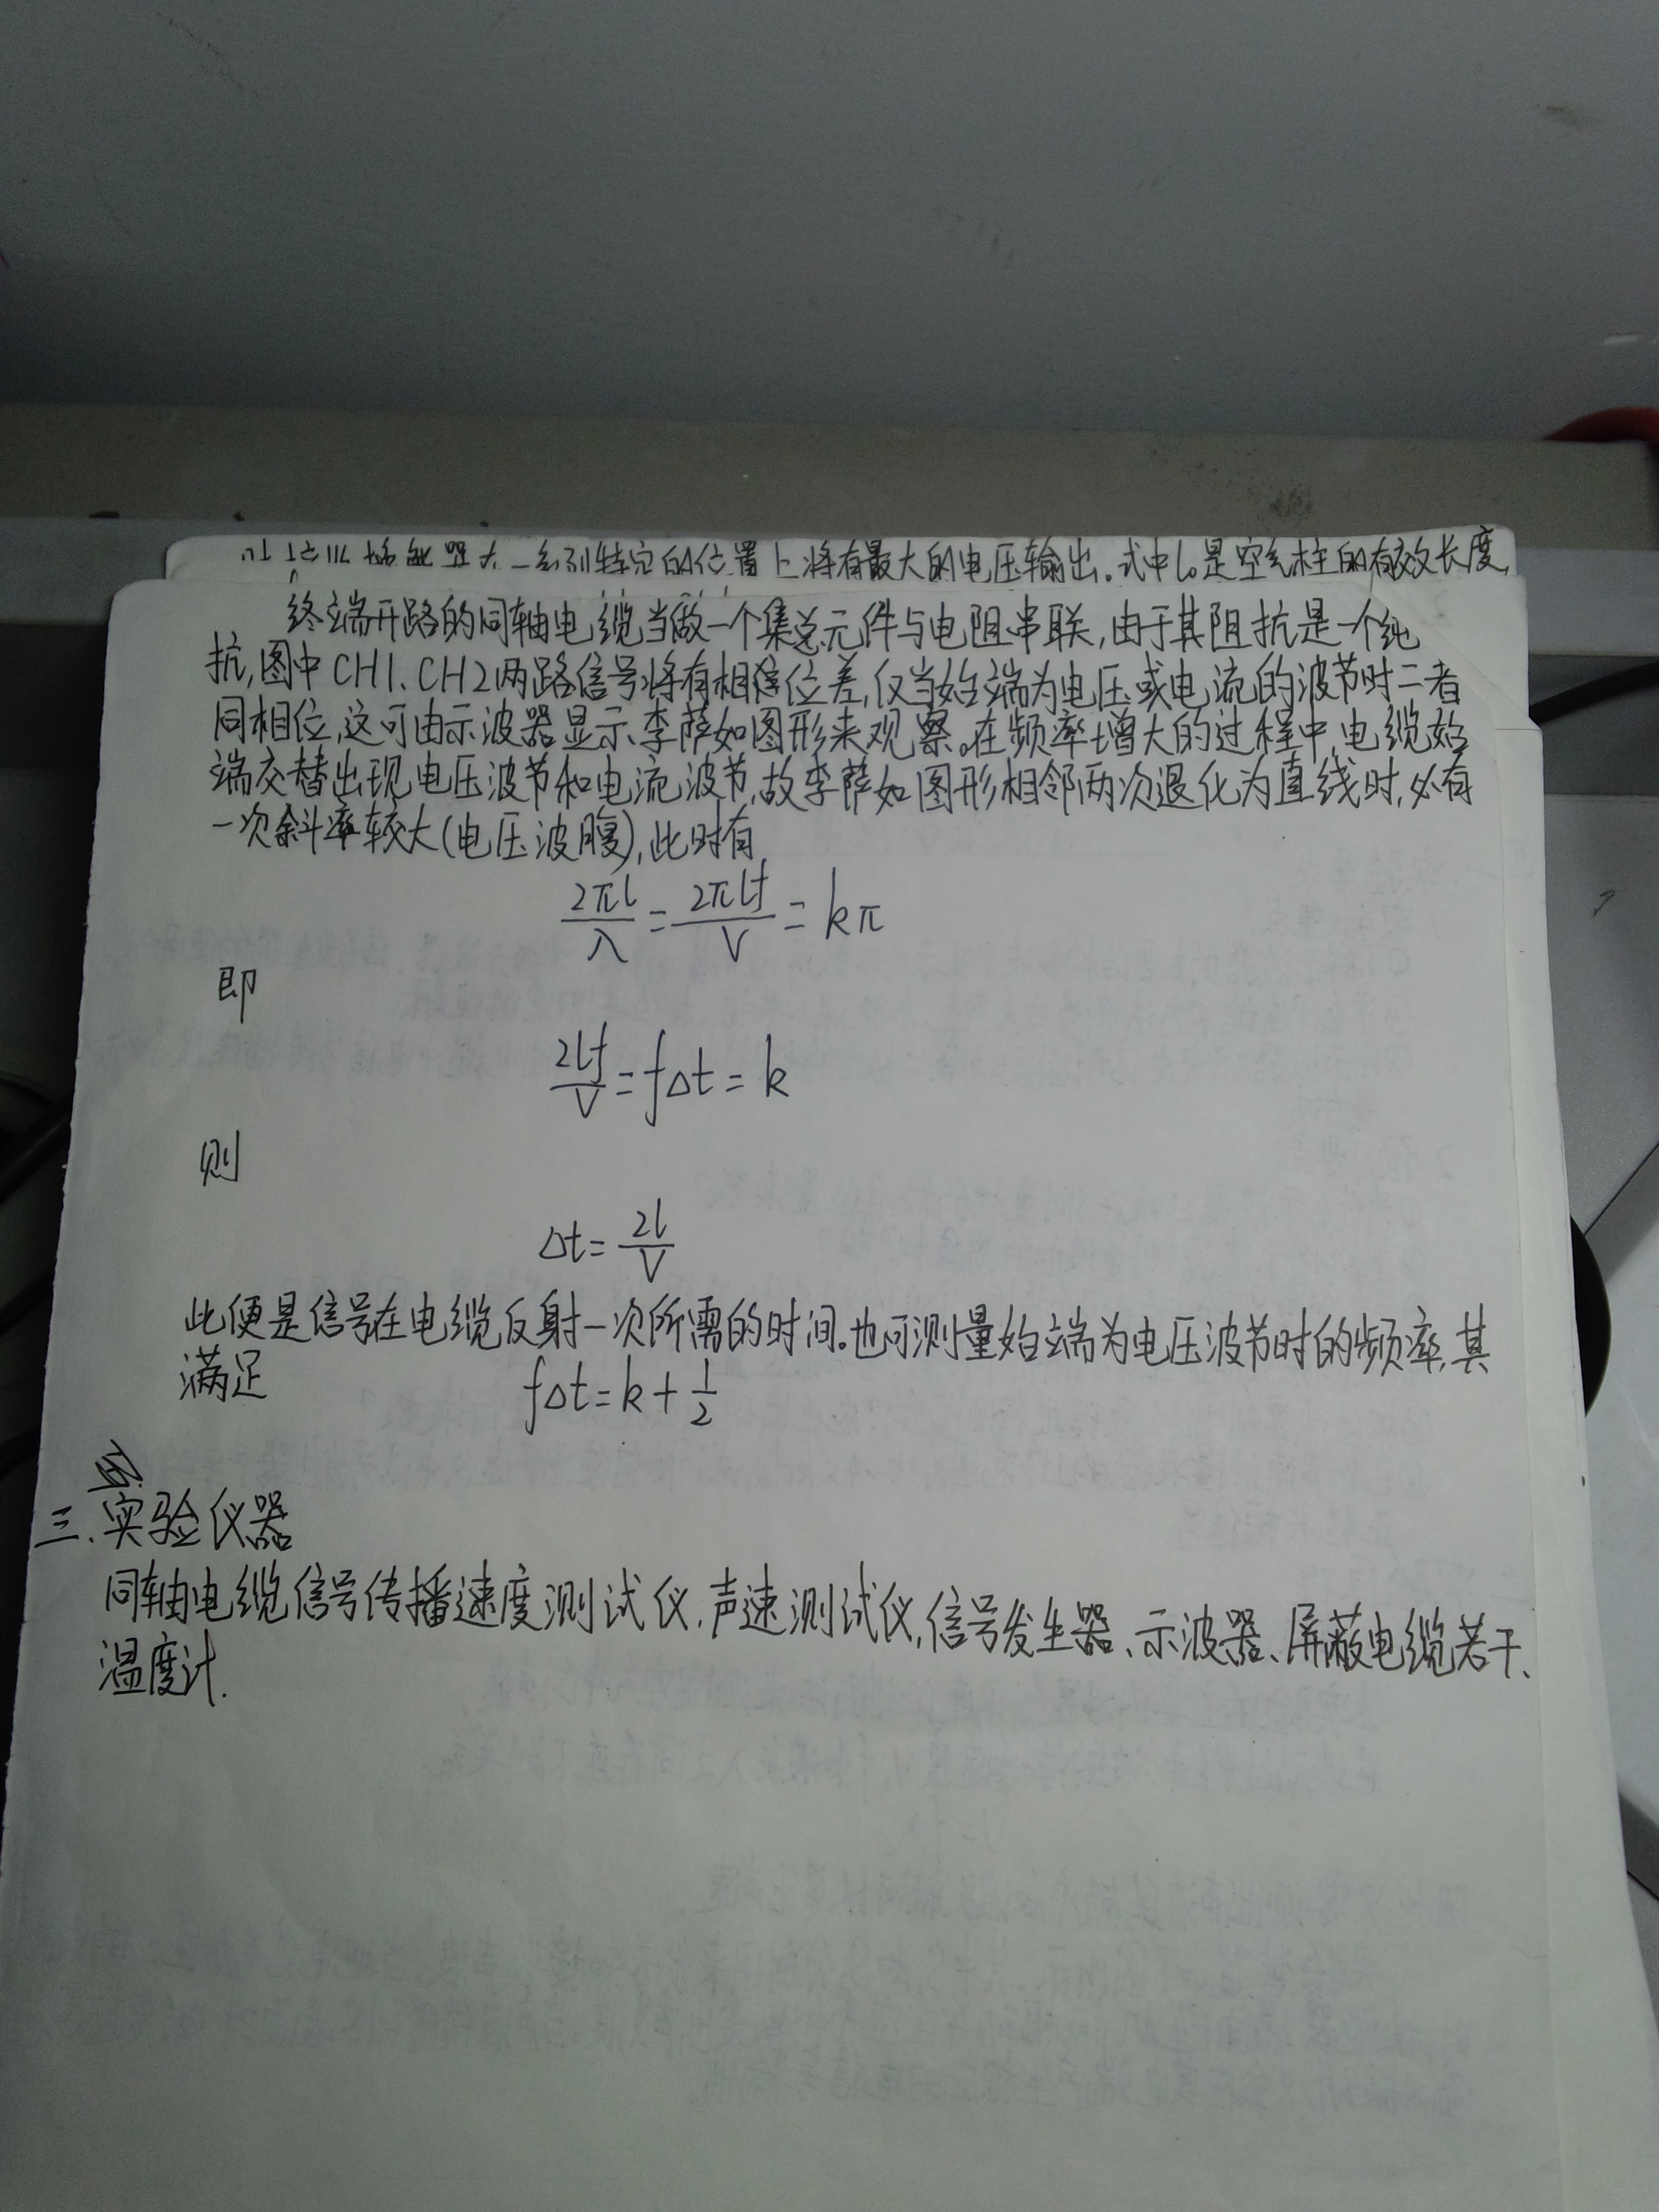 一系列特定的位置上将有最大的电压输出。式中l₀是空气柱的有效长度,
终端开路的同轴电缆当做一个集总元件与电阻串联,由于其阻抗是一个纯
抗,图中CH1、CH2两路信号将有相位差,仅当始端为电压或电流的波节时二者
同相位,这可由示波器显示李萨如图形来观察。在频率增大的过程中,电缆始
端交替出现电压波节和电流波节,故李萨如图形相邻两次退化为直线时,必有
一次斜率较大(电压波腹),此时有
2πl/λ = 2πlf/V = kπ
即
2lf/V = fΔt = k
则
Δt = 2l/V
此便是信号在电缆反射一次所需的时间。也可测量始端为电压波节时的频率,其
满足 fΔt = k + 1/2
三、实验仪器
同轴电缆信号传播速度测试仪,声速测试仪,信号发生器、示波器、屏蔽电缆若干、
温度计.